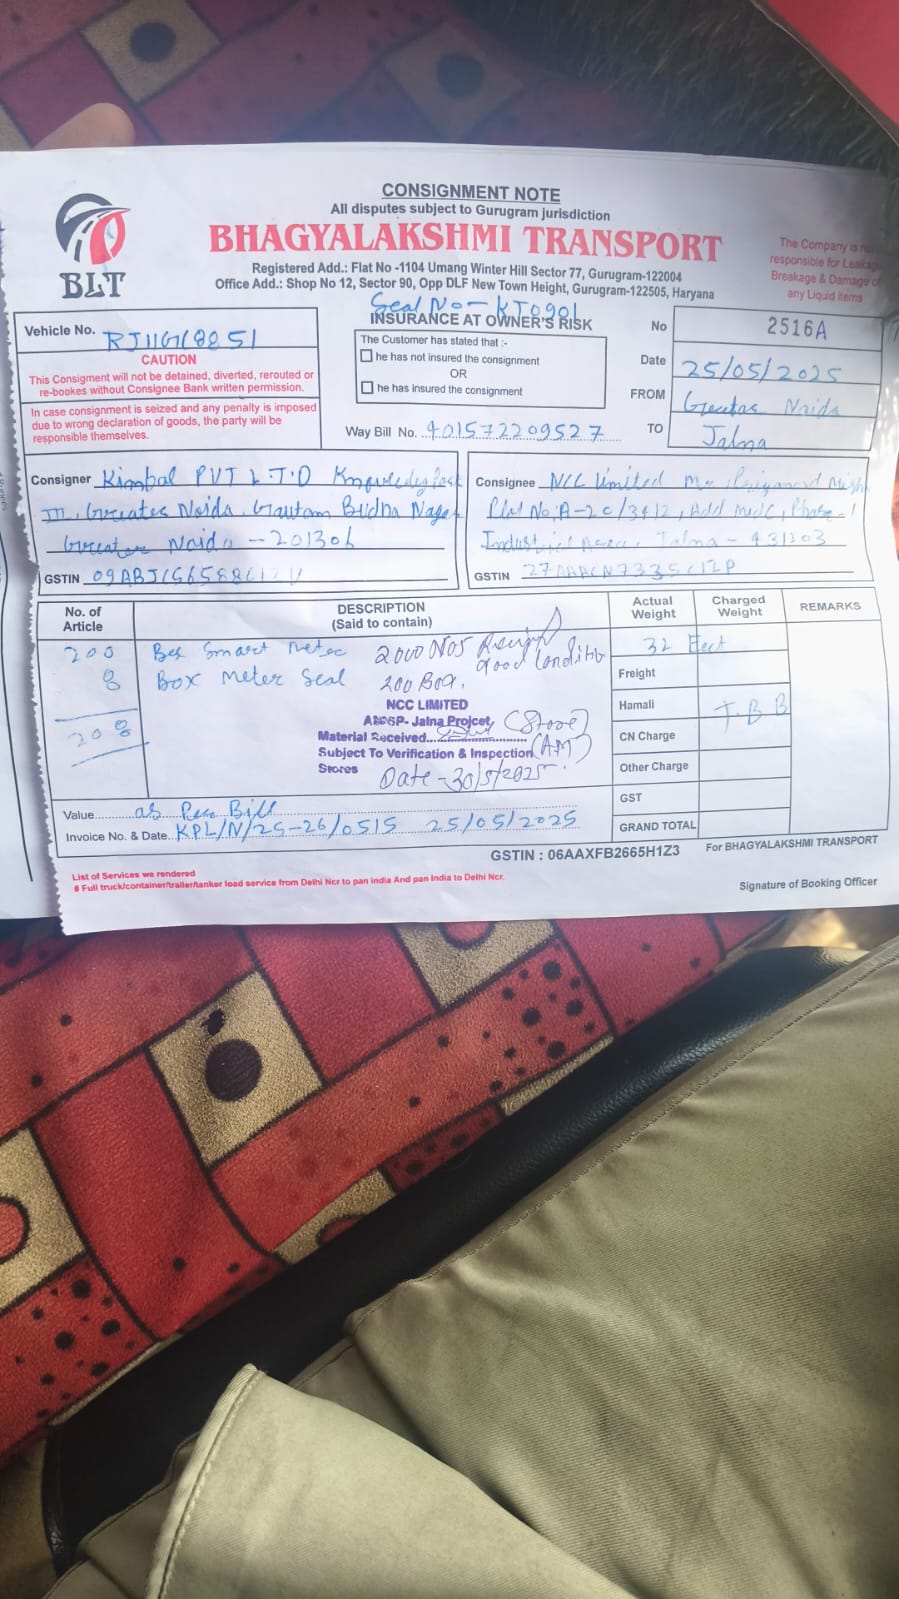 CONSIGNMENT NOTE
All disputes subject to Gurugram jurisdiction
BLT
BHAGYALAKSHMI TRANSPORT
The Company is
responsible for Leakage
Breakage & Damage of
any Liquid items
Registered Add.: Flat No -1104 Umang Winter Hill Sector 77, Gurugram-122004
Office Add.: Shop No 12, Sector 90, Opp DLF New Town Height, Gurugram-122505, Haryana
Seal No-
Vehicle No.
CAUTION
This Consigment will not be detained, diverted, rerouted or
re-bookes without Consignee Bank written permission.
In case consignment is seized and any penalty is imposed
due to wrong declaration of goods, the party will be
responsible themselves.
INSURANCE AT OWNER'S RISK
The Customer has stated that :-
he has not insured the consignment
OR
he has insured the consignment
Way Bill No. 401572209527
No 2516A
Date 25/05/2025
FROM Greater Noida
TO Jalna
Consigner Kimbal PVT L.T.D Knowledge Park
III, Greater Noida, Gautam Budha Nagar
Greater Noida - 201306
GSTIN
Consignee NCC Limited
Plot No: A-20/3412, Add MIDC, Phase-1
Industrial Area, Jalna - 431203
GSTIN 27AAACN7335C1ZP
No. of
Article
DESCRIPTION
(Said to contain)
Actual
Weight
Charged
Weight
REMARKS
200 Box Smart meter 2000 Nos
good Condition
8 Box Meter Seal 200 Box.
208
32 Feet
NCC LIMITED
Jalna Projcet, (Store)
Material Received
Subject To Verification & Inspection (AM)
Stores Date - 30/5/2025
Freight
Hamali T.B.B
CN Charge
Other Charge
GST
GRAND TOTAL
Value as Per Bill
Invoice No. & Date. KPL/N/25-26/0515 25/05/2025
GSTIN : 06AAXFB2665H1Z3
For BHAGYALAKSHMI TRANSPORT
List of Services we rendered
# Full truck/container/trailer/tanker load service from Delhi Ncr to pan india And pan India to Delhi Ncr.
Signature of Booking Officer